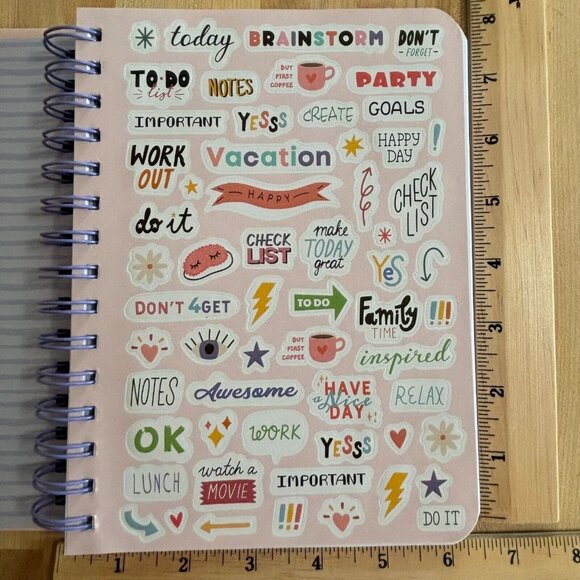 today BRAINSTORM DON'T
-FORGET-
TO·DO
list
NOTES
BUY
FIRST
COFFEE
PARTY
IMPORTANT YESSS CREATE GOALS
WORK
OUT
Vacation
HAPPY
DAY
!
HAPPY
CHECK
LIST
do it
CHECK
LIST
make
TODAY
great
YES
DON'T 4GET
TO DO
Family
TIME
!!!
BUY
FIRST
COFFEE
inspired
NOTES Awesome
HAVE
a Nice
DAY
RELAX
OK WORK YESSS
LUNCH
watch a
MOVIE
IMPORTANT
!!!
DO IT
8
7
6
5
4
3
2
1
1 2 3 4 5 6 7 8